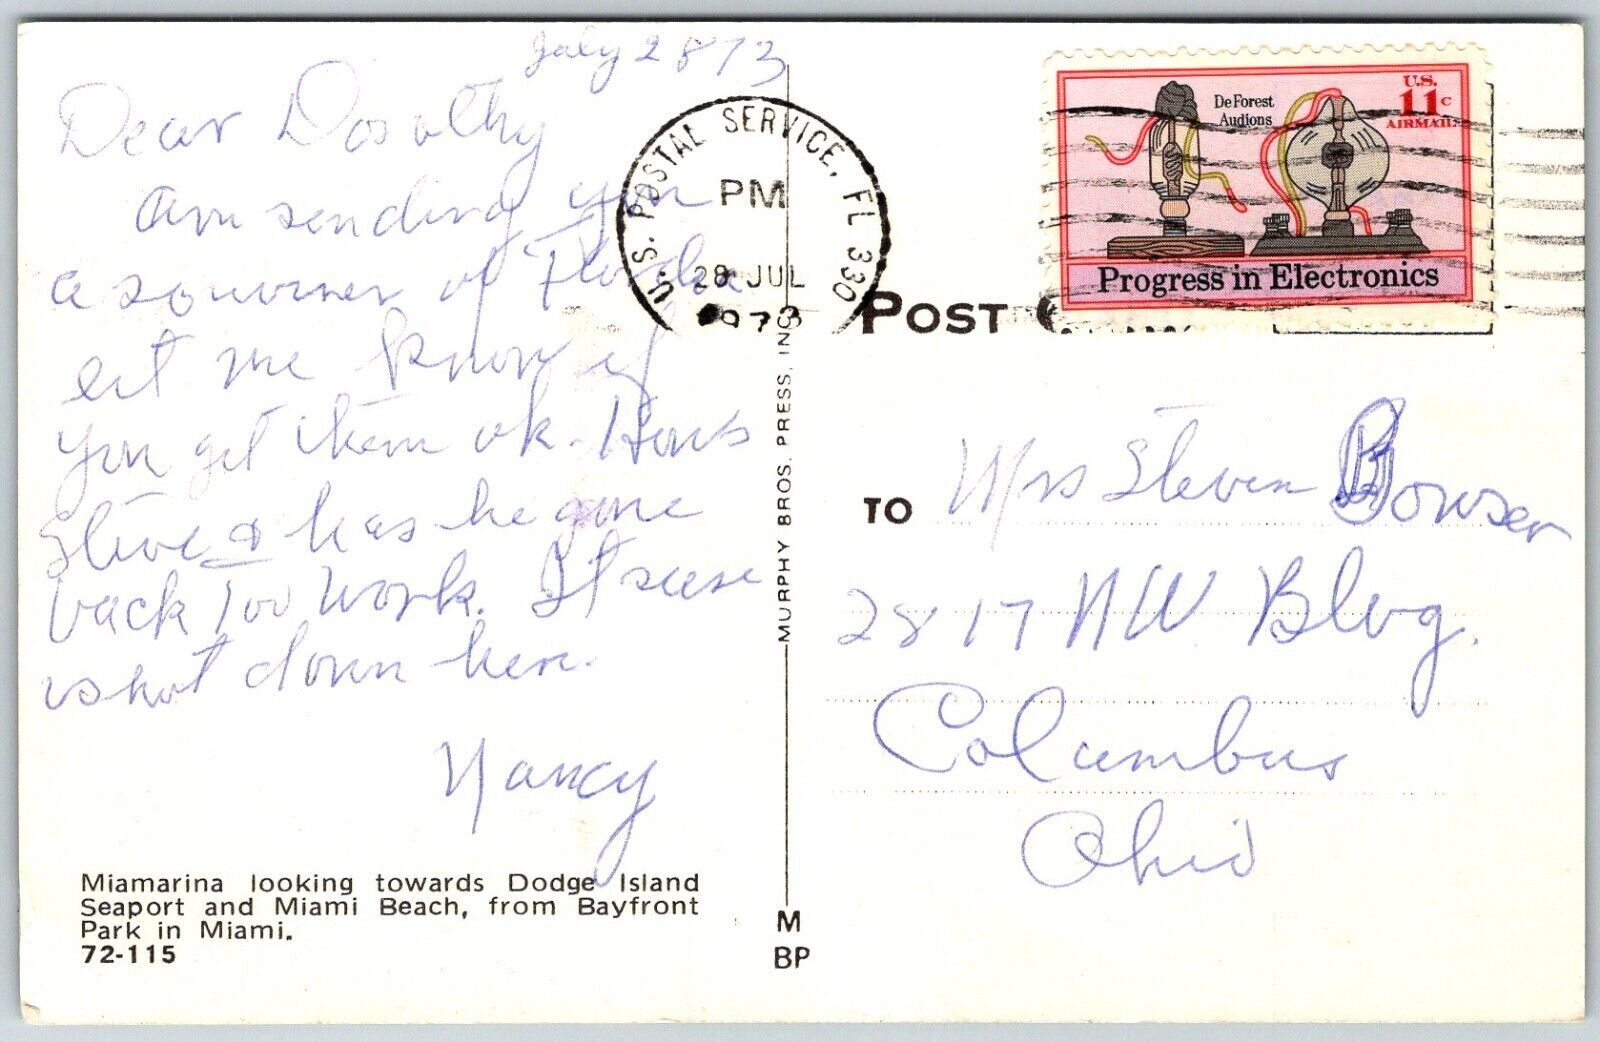 July 28 73
Dear Dorothy
Am sending you
a souviner of Florida
let me know if
you get them ok. Hows
Steve & has he gone
back Too Work. It sure
is hot down here.
Nancy
Miamarina looking towards Dodge Island
Seaport and Miami Beach, from Bayfront
Park in Miami.
72-115
MURPHY BROS. PRESS, INC.
M
BP
U.S. POSTAL SERVICE, FL 330
PM
28 JUL
1973
De Forest
Audions
U.S.
11c
AIRMAIL
Progress in Electronics
POST
TO Mrs Steven Bowser
2817 NW Blvg.
Columbus
Ohio